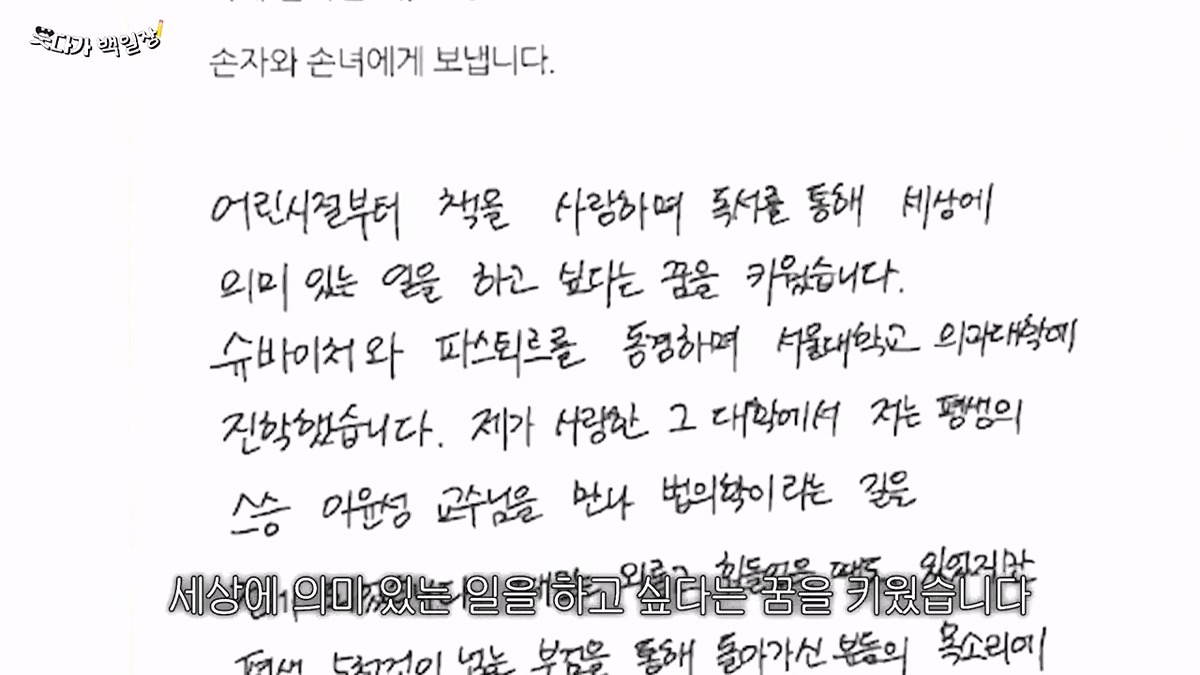 웃다가 백일장
손자와 손녀에게 보냅니다.
어린시절부터 책을 사랑하며 독서를 통해 세상에
의미 있는 일을 하고 싶다는 꿈을 키웠습니다.
슈바이처와 파스퇴르를 동경하며 서울대학교 의과대학에
진학했습니다. 제가 사랑한 그 대학에서 저는 평생의
스승 이윤성 교수님을 만나 법의학이라는 길을
외롭고 힘들었을 때도 있었지만
세상에 의미 있는 일을 하고 싶다는 꿈을 키웠습니다
평생 넘는 부검을 통해 돌아가신 분들의 목소리에